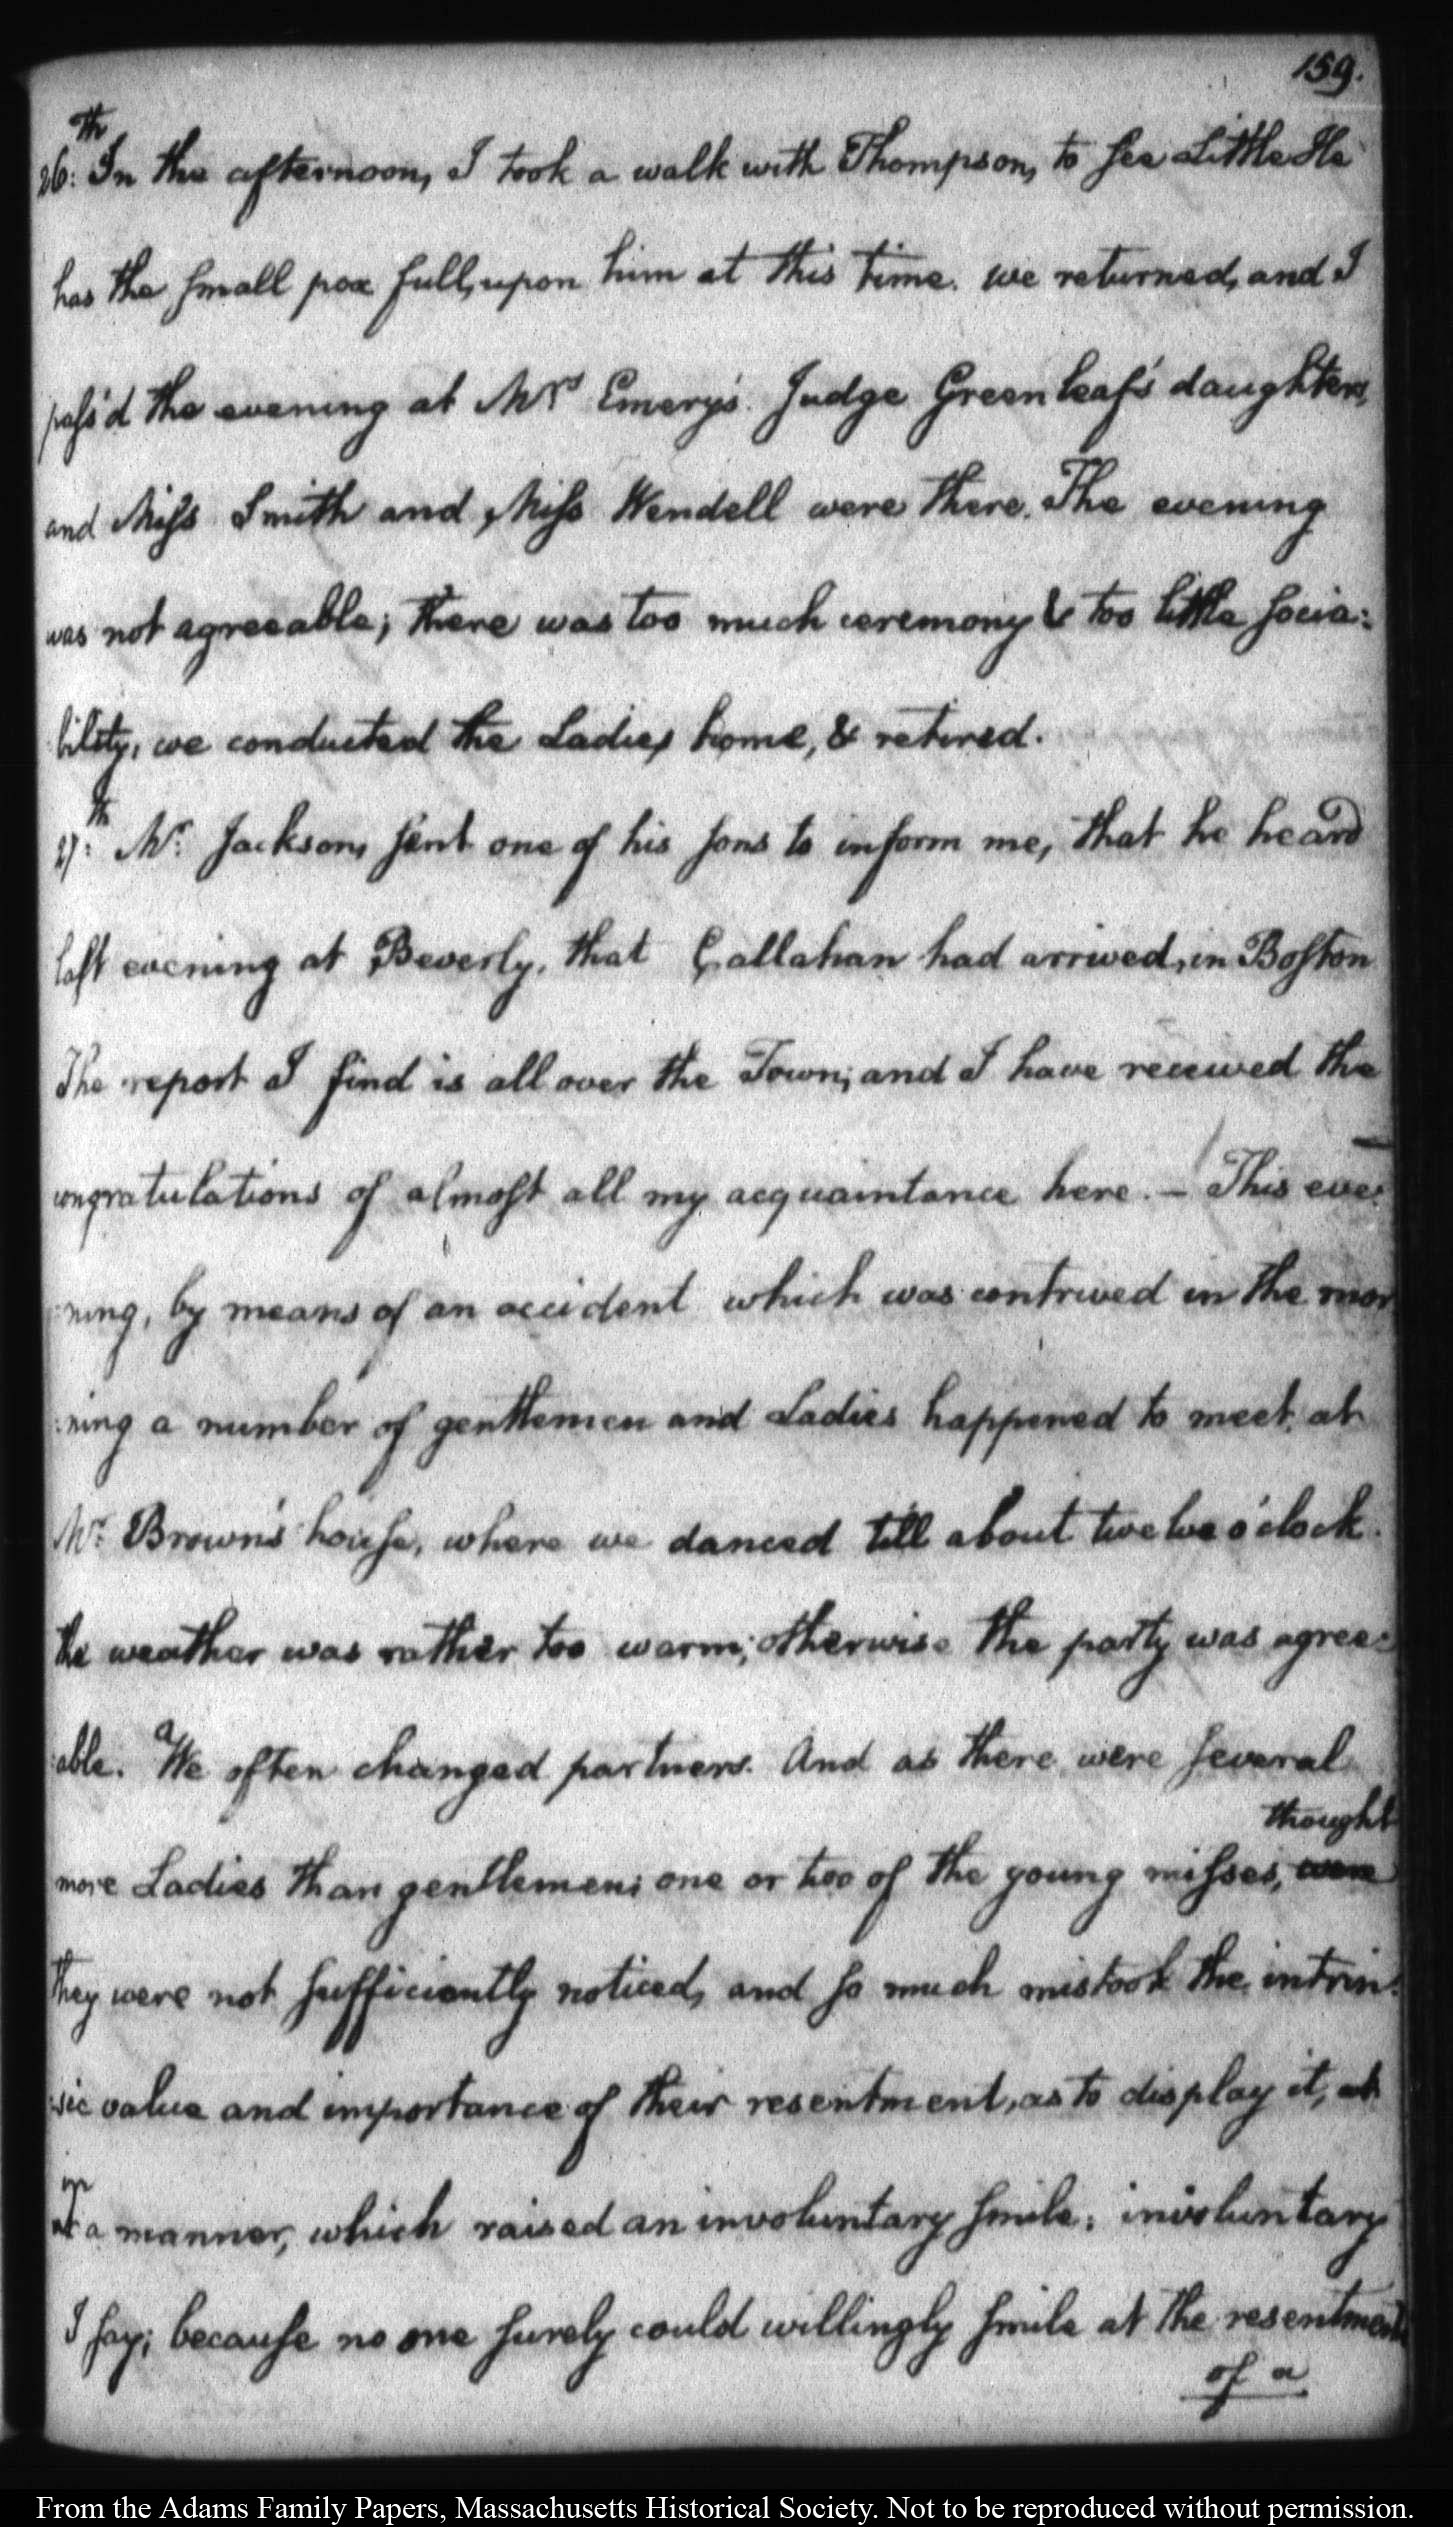 159.
26:th In the afternoon, I took a walk with Thompson, to see Little He
has the small pox full, upon him at this time. we returned, and I
pass'd the evening at Mrs Emery's. Judge Greenleaf's daughters,
and Miss Smith and Miss Wendell were there. The evening
was not agreeable; there was too much ceremony & too little socia:
:bility, we conducted the Ladies home, & retired.
27:th Mr: Jackson, sent one of his sons to inform me, that he heard
last evening at Beverly, that Callahan had arrived, in Boston
The report I find is all over the Town; and I have received the
congratulations of almost all my acquaintance here. — This eve:
:ning, by means of an accident which was contrived in the mor
:ning a number of gentlemen and Ladies happened to meet, at
Mr: Brown's house, where we danced till about twelve o'clock.
the weather was rather too warm; otherwise the party was agree:
:able. a We often changed partners. And as there were several
thought
more Ladies than gentlemen; one or two of the young misses, were
they were not sufficiently noticed, and so much mistook the intrin:
:sic value and importance of their resentment, as to display it, at
in
at a manner, which raised an involuntary smile; involuntary
I say; because no one surely could willingly smile at the resentment
of a
From the Adams Family Papers, Massachusetts Historical Society. Not to be reproduced without permission.